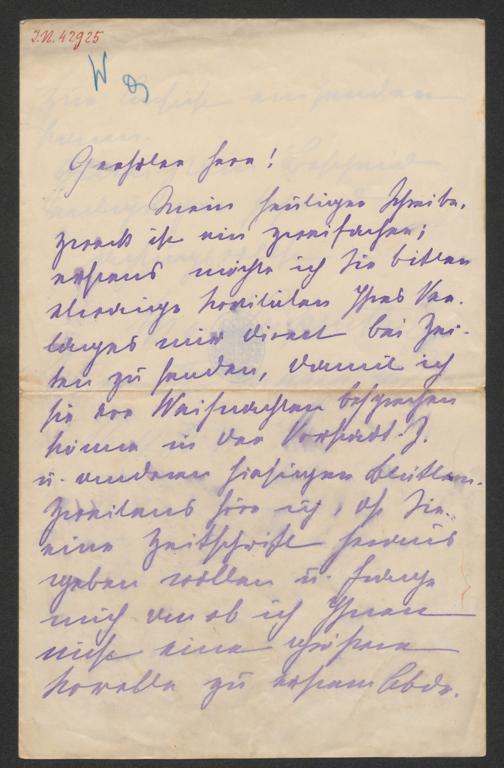 I.N. 42925
W
Geehrter Herr!
Mein heutiger Schreibe-
zweck ist ein zweifacher;
erstens möchte ich Sie bitten
allerdings Novitäten Ihres Ver-
lages mir direct bei Zei-
ten zu senden, damit ich
sie vor Weihnachten besprechen
könne in der Vorstadt-Z.
u. anderen hiesigen Blättern.
Zweitens höre ich, daß Sie
eine Zeitschrift heraus
geben wollen u. frage
mich an ob ich Ihnen
nicht eine größere
Novelle zu ersten Abdr.